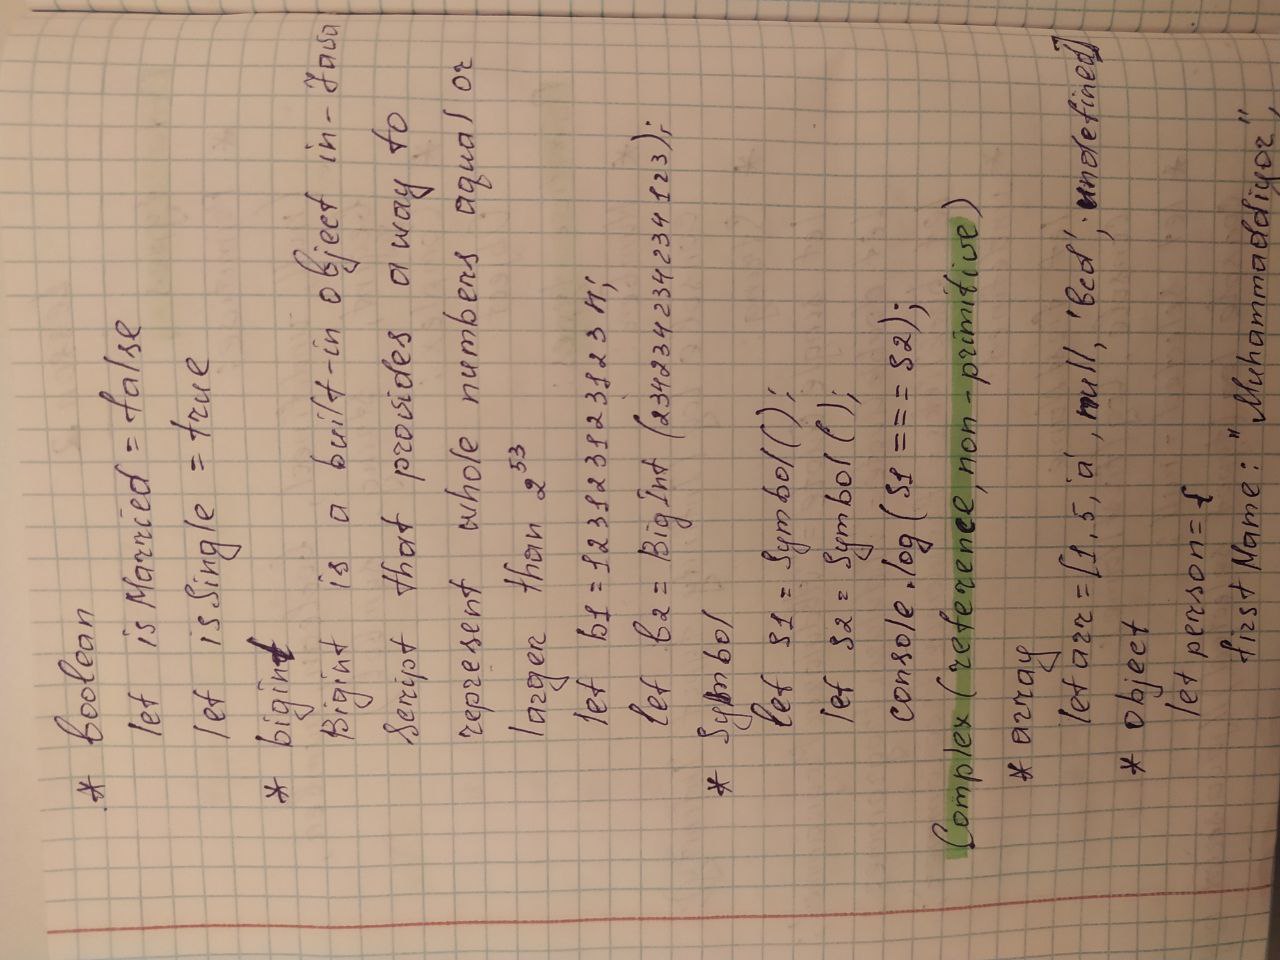 * boolean
let isMarried = false
let isSingle = true
* bigint
Bigint is a built-in object in-Java
Script that provides a way to
represent whole numbers aqual or
larger than 2⁵³
let b1 = 123123123123123n;
let b2 = BigInt (234234234234234123);
* Symbol
let s1 = Symbol();
let s2 = Symbol();
console.log(s1 === s2);
Complex (reference, non-primitive)
* array
let arr = [1.5, 'a', null, 'bcd', undefined]
* object
let person = {
firstName: "Muhammaddiyor",